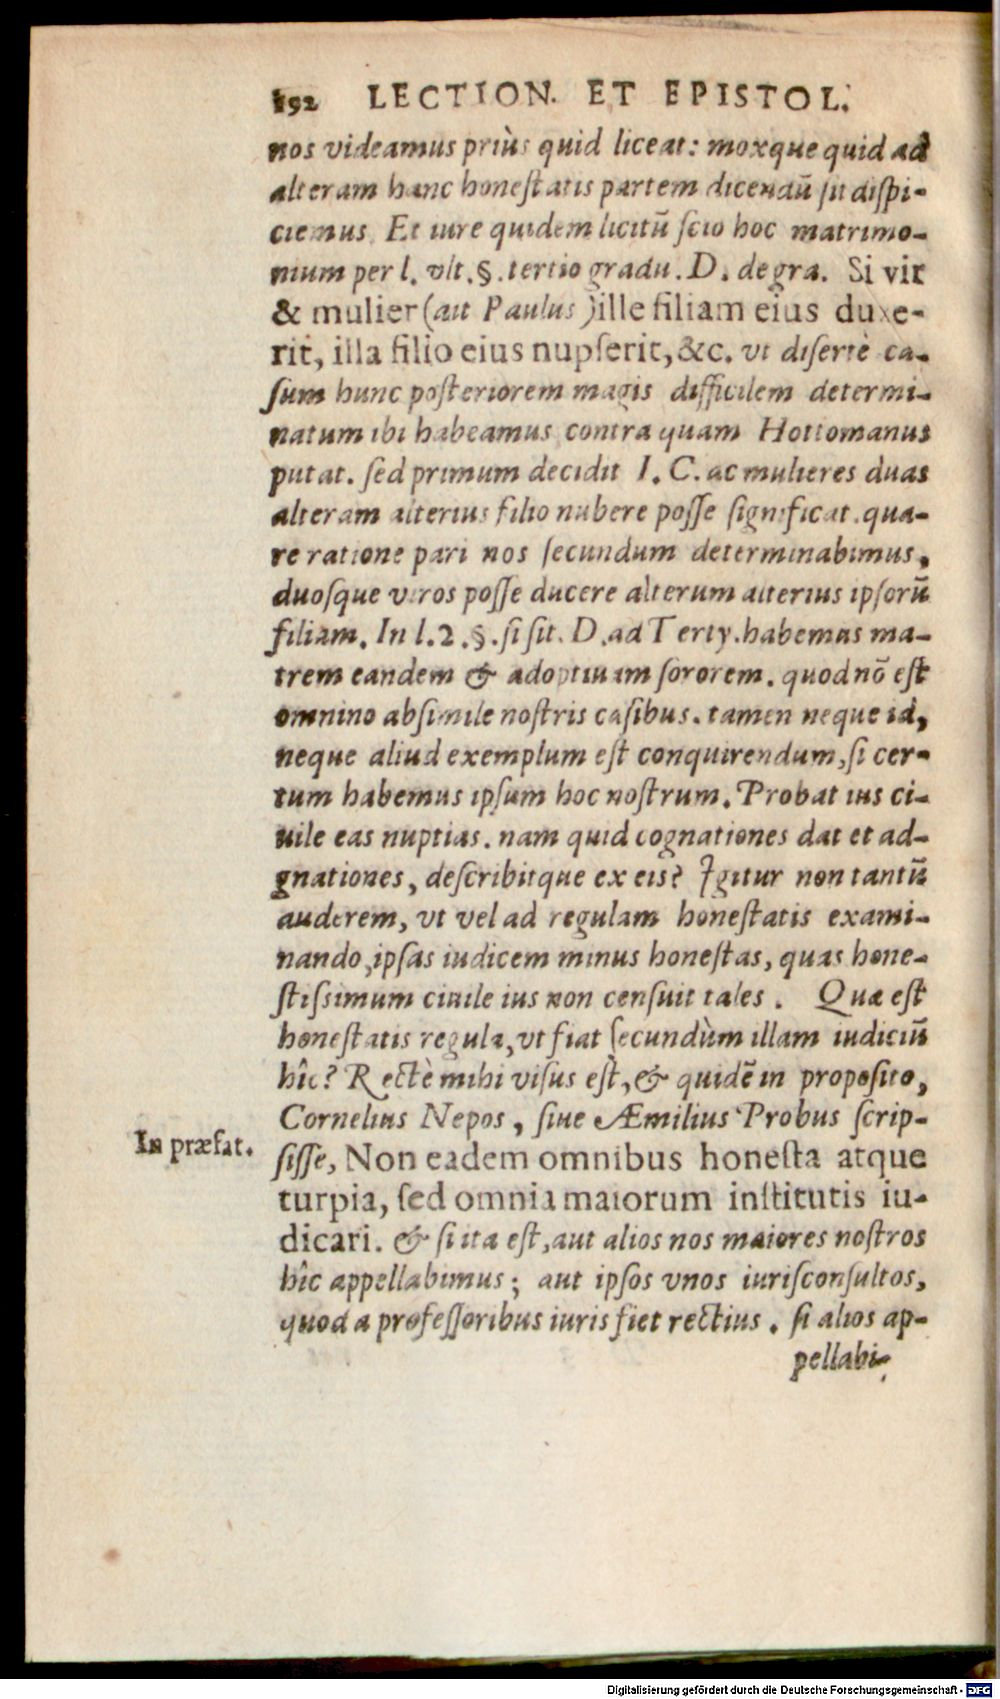 192 LECTION. ET EPISTOL.
nos videamus priùs quid liceat: moxque quid ad
alteram hanc honeſtatis partem dicendū ſit diſpi-
ciemus. Et iure quidem licitū ſcio hoc matrimo-
nium per l. vlt. §. tertio gradu. D. de gra. Si vir
& mulier (ait Paulus) ille filiam eius duxe-
rit, illa filio eius nupſerit, &c. vt diſertè ca-
ſum hunc poſteriorem magis difficilem determi-
natum ibi habeamus contra quam Hottomanus
putat. ſed primum decidit I. C. ac mulieres duas
alteram alterius filio nubere poſſe ſignificat. qua-
re ratione pari nos ſecundum determinabimus,
duoſque viros poſſe ducere alterum alterius ipſorū
filiam. In l. 2. §. ſi ſit. D. ad Terty. habemus ma-
trem eandem & adoptiuam ſororem. quod nō eſt
omnino abſimile noſtris caſibus. tamen neque id,
neque aliud exemplum eſt conquirendum, ſi cer-
tum habemus ipſum hoc noſtrum. Probat ius ci-
uile eas nuptias. nam quid cognationes dat et ad-
gnationes, deſcribitque ex eis? Igitur non tantū
auderem, vt vel ad regulam honeſtatis exami-
nando, ipſas iudicem minus honeſtas, quas hone-
ſtiſſimum ciuile ius non cenſuit tales. Quæ eſt
honeſtatis regula, vt fiat ſecundùm illam iudiciū
hîc? Rectè mihi viſus eſt, & quidē in propoſito,
Cornelius Nepos, ſiue Æmilius Probus ſcrip-
In præfat.
ſiſſe, Non eadem omnibus honeſta atque
turpia, ſed omnia maiorum inſtitutis iu-
dicari. & ſi ita eſt, aut alios nos maiores noſtros
hîc appellabimus; aut ipſos vnos iuriſconſultos,
quod a profeſſoribus iuris fiet rectius. ſi alios ap-
pellabi-
Digitalisierung gefördert durch die Deutsche Forschungsgemeinschaft - DFG